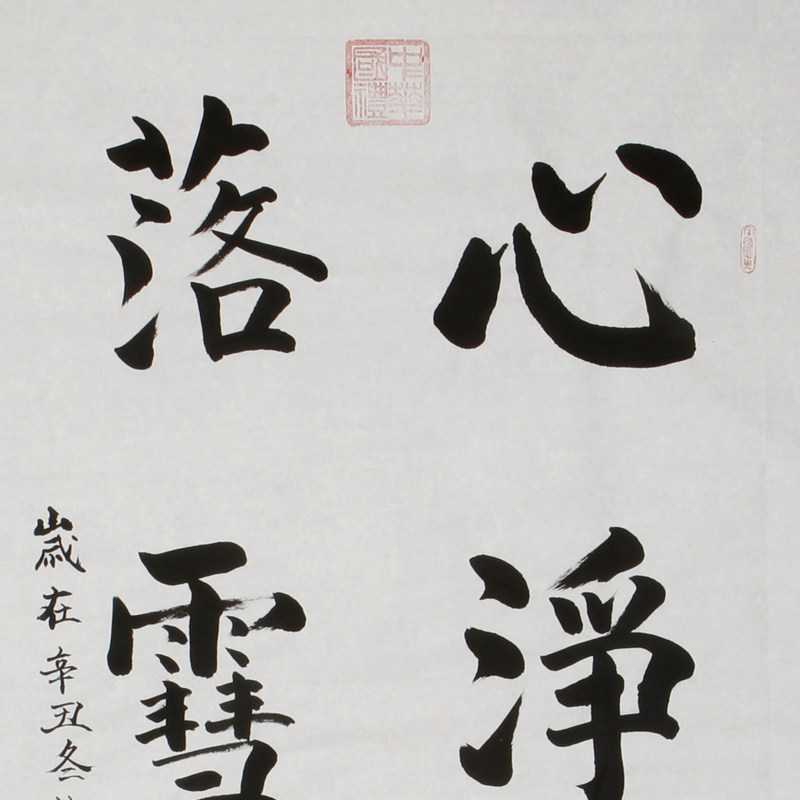 中華國禮
心淨
落䨮
歲在辛丑冬